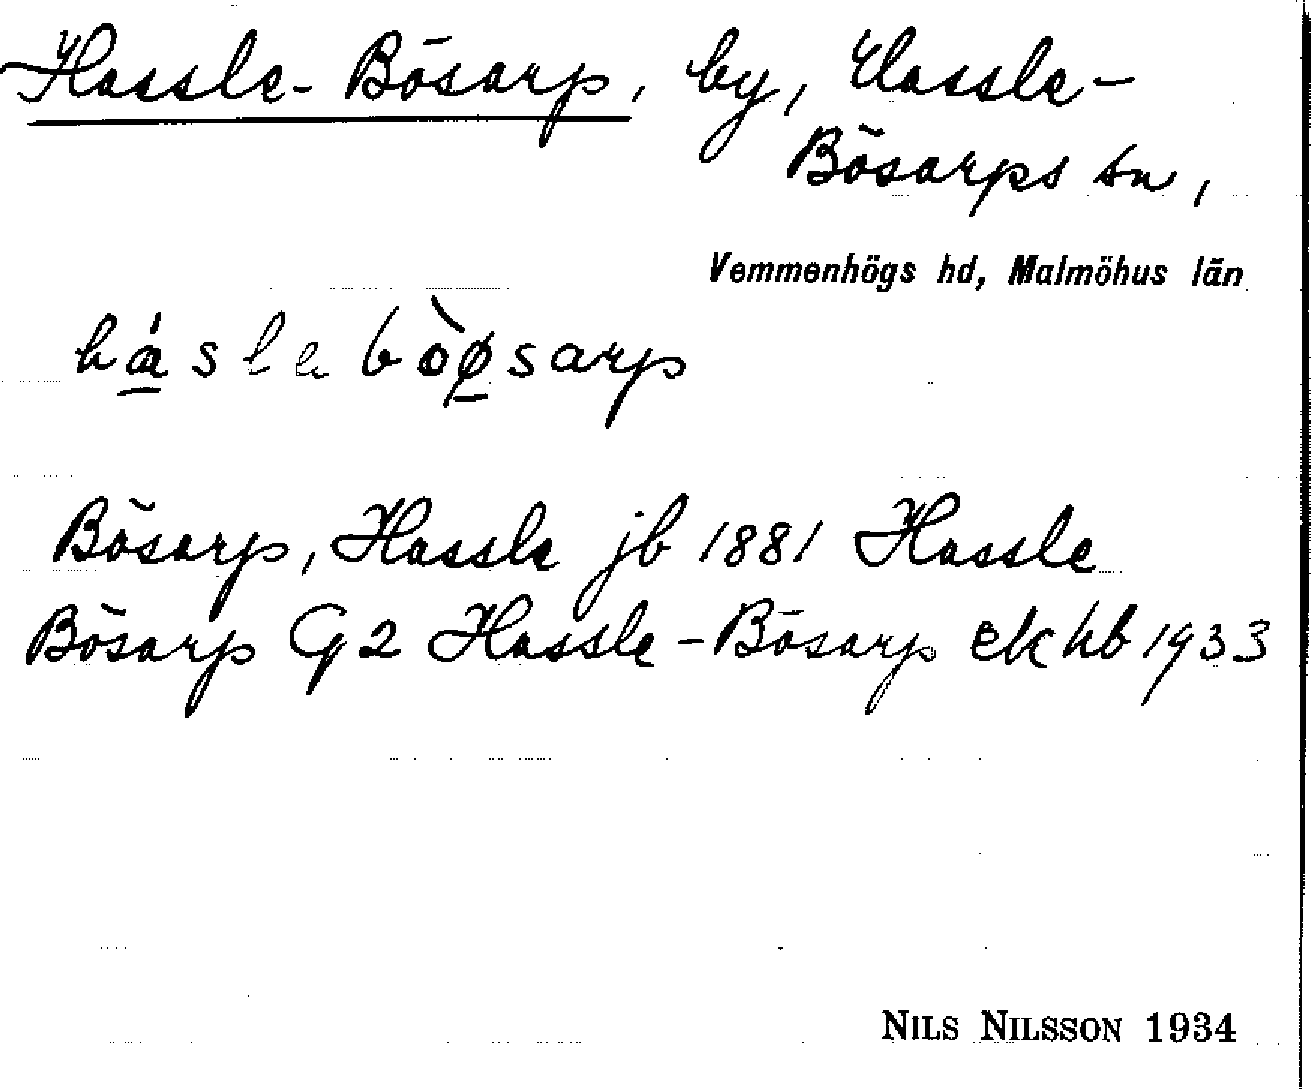 Hassle-Bösarp, by, Hassle-
Bösarps sn,
Vemmenhögs hd, Malmöhus län
hásle bòøsarp
Bösarp, Hassle jb 1881 Hassle
Bösarp G2 Hassle-Bösarp ek kb 1933
NILS NILSSON 1934